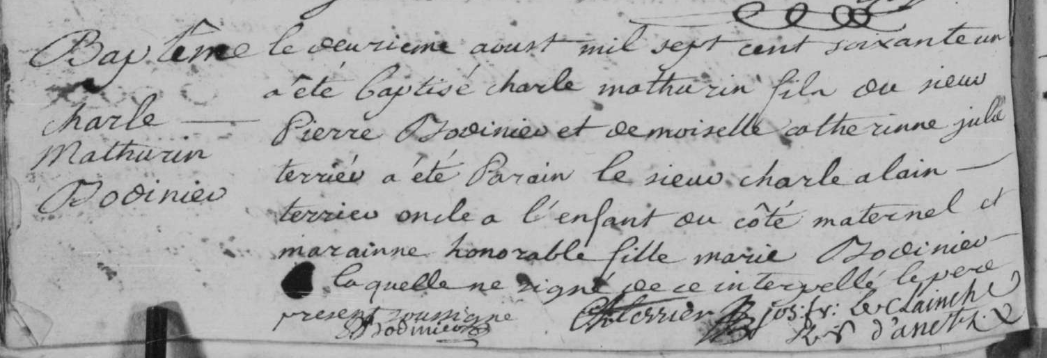 Baptême
charle
Mathurin
Bodinier
le deuxieme aoust mil sept cent soixante un
a été baptisé charle mathurin fils du sieur
Pierre Bodinier et demoiselle catherinne julie
terrier a été Parain le sieur charle alain
terrier oncle a l'enfant du côté maternel et
marainne honorable fille marie Bodinier
laquelle ne signé de ce intervellé le pere
present soussigné
Bodinier
Ch terrier
jos: fr: Le Clainche